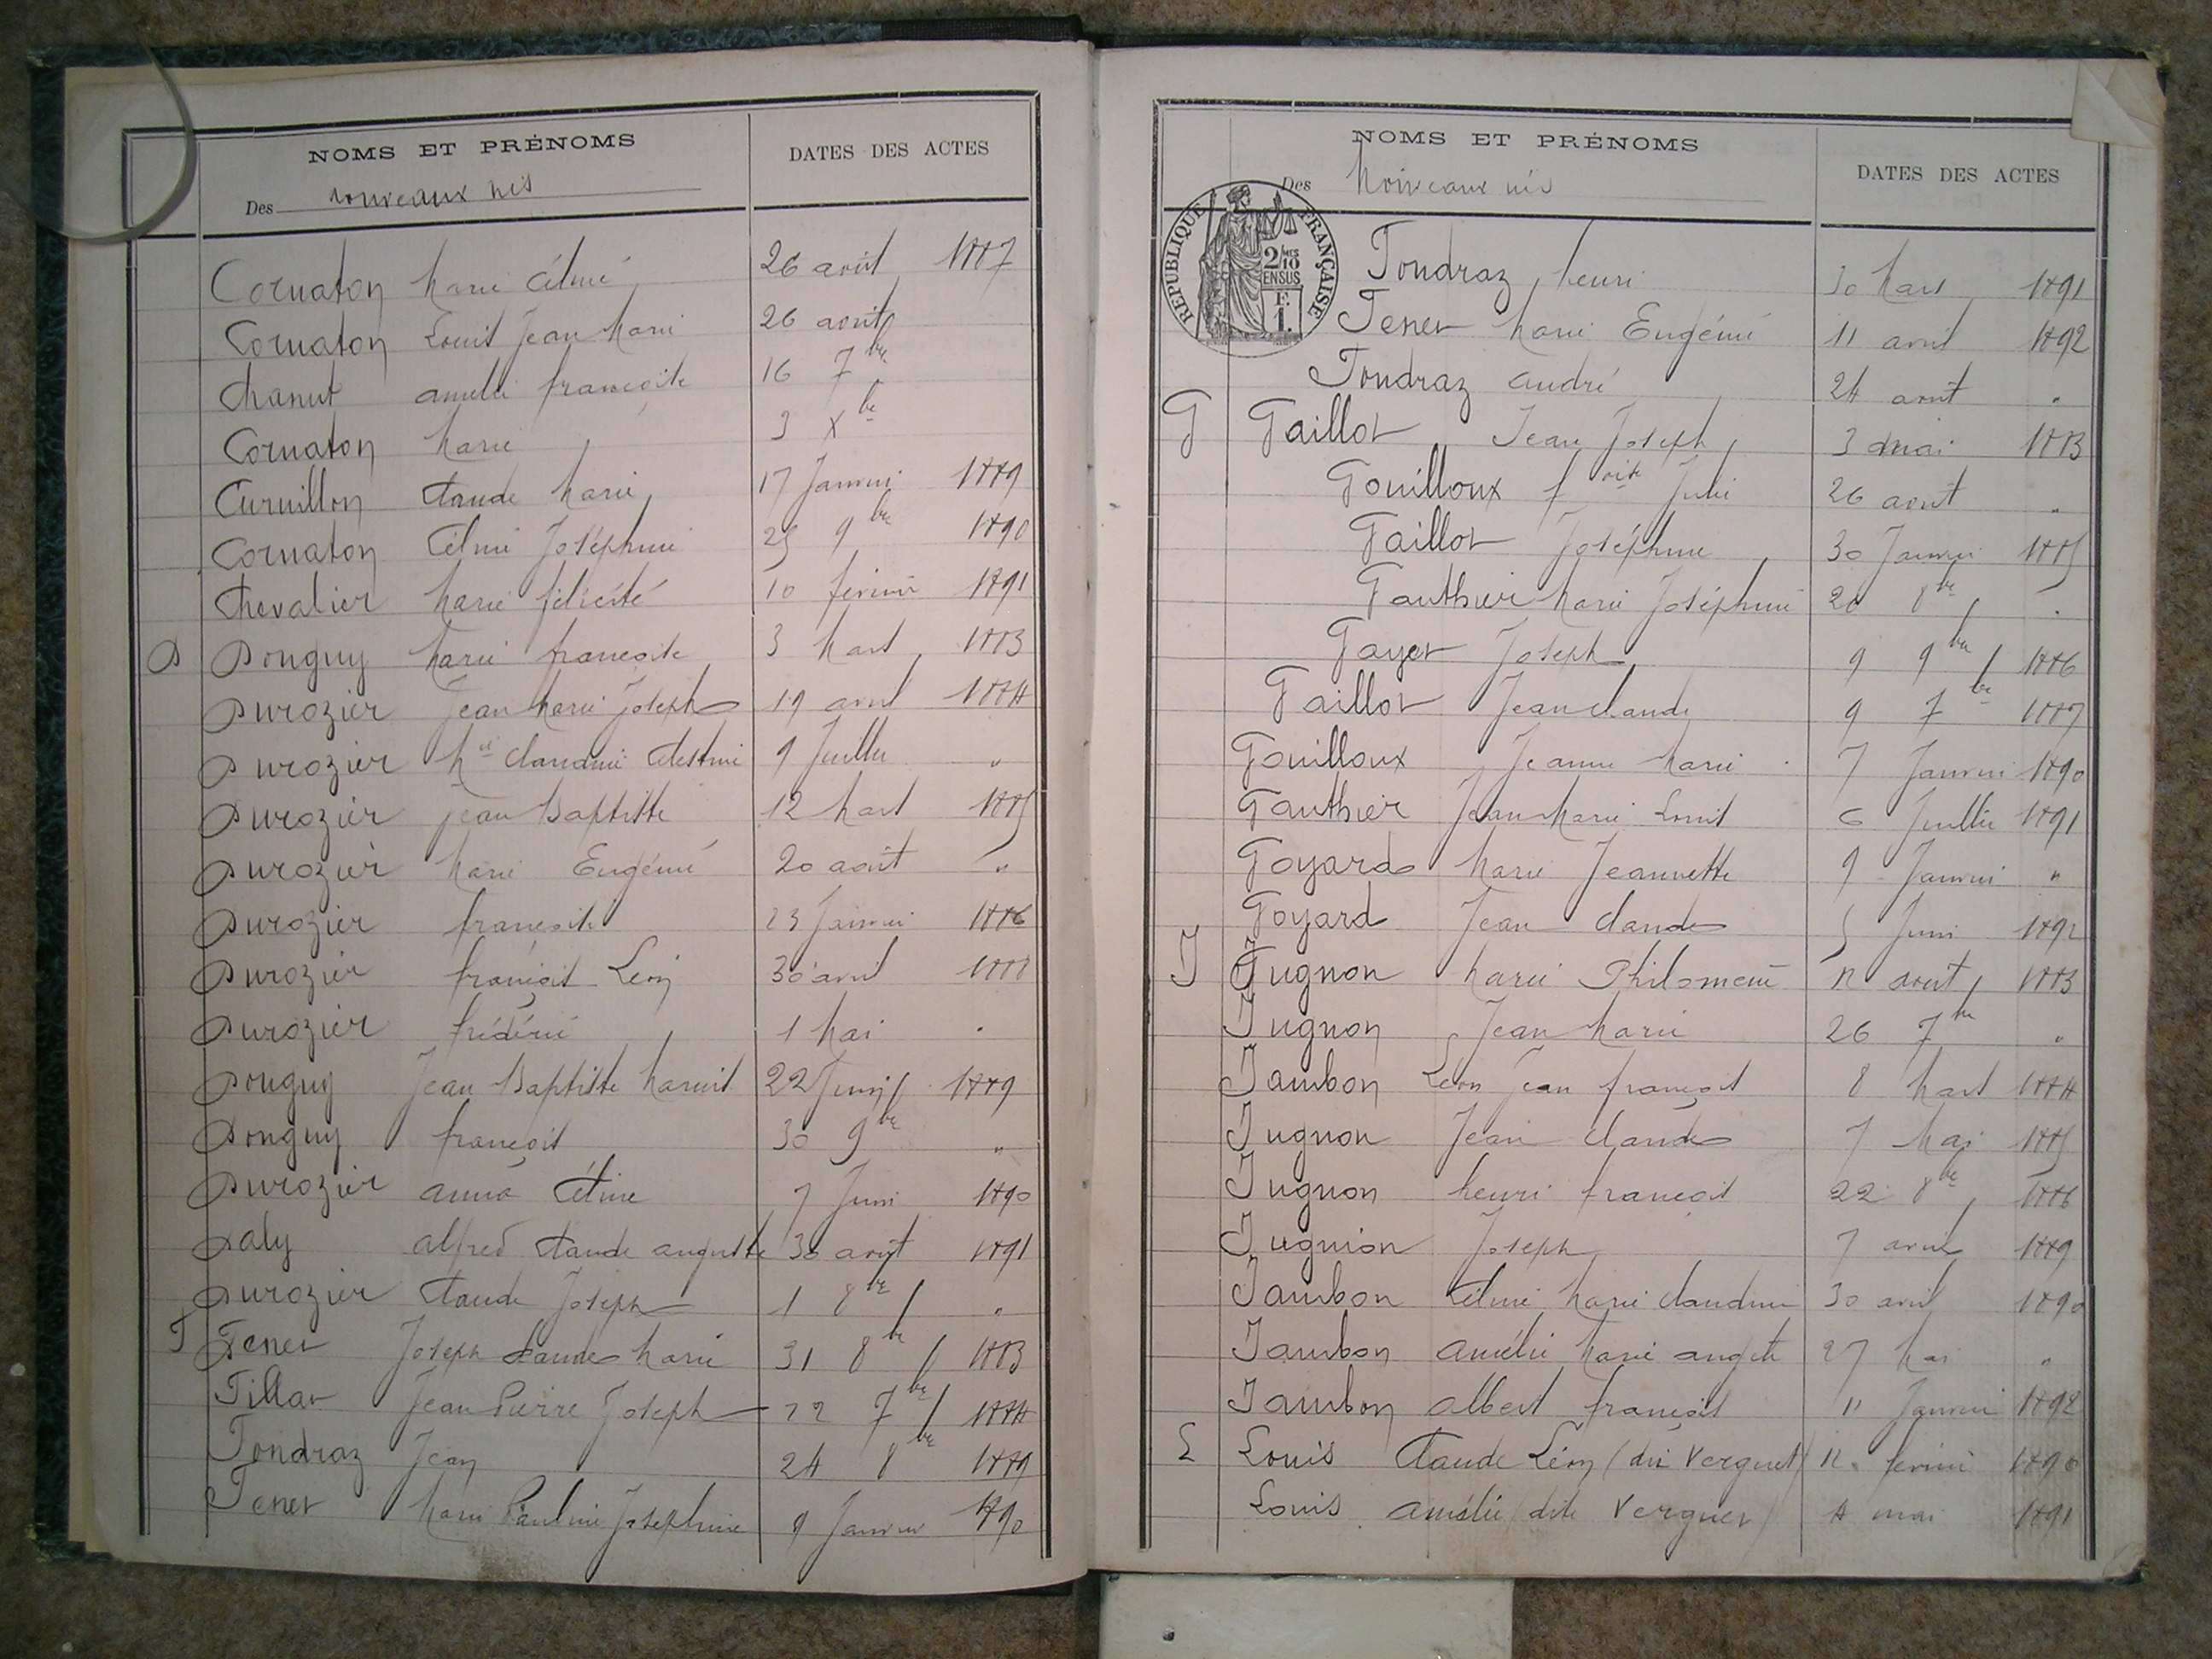 NOMS ET PRÉNOMS
DATES DES ACTES
Des nouveaux nés
Cornaton Marie Célinie 26 avril 1887
Cornaton Louis Jean Marie 26 août
Chanut amélie françoise 16 7bre
Cornaton Marie 3 Xbre
Curvillon Claude Marie 17 Janvier 1889
Cornaton Célinie Joséphine 25 9bre 1890
Chevalier Marie félicité 10 février 1891
D Donguy Marie françoise 3 Mars 1883
Durozier Jean Marie Joseph 19 avril 1884
Durozier Mie Claudine Célestine 9 Juillet "
Durozier Jean Baptiste 12 Mars 1885
Durozier Marie Eugénie 20 août "
Durozier françoise 23 Janvier 1886
Durozier françois Léon 30 avril 1888
Durozier frédéric 1 Mai "
Donguy Jean Baptiste Marius 22 Juin 1889
Donguy françois 30 9bre "
Durozier anna Céline 7 Juin 1890
Daly alfred Claude auguste 30 août 1891
Durozier Claude Joseph 1 8bre "
F Fenet Joseph Claude Marie 31 8bre 1883
Fillar Jean Pierre Joseph 22 7bre 1884
Fondraz Jean 24 8bre 1889
Fenet Marie Pauline Joséphine 9 Janvier 1890
NOMS ET PRÉNOMS
DATES DES ACTES
Des Nouveaux nés
RÉPUBLIQUE FRANÇAISE
2 MES 10
EN SUS
1 F.
Fondraz henri 30 Mars 1891
Fenet Marie Eugénie 11 avril 1892
Fondraz andré 24 août "
G Gaillot Jean Joseph 3 mai 1883
Gouilloux foise Julie 26 août "
Gaillot Joséphine 30 Janvier 1885
Gauthier Marie Joséphine 20 8bre "
Gayet Joseph 9 9bre 1886
Gaillot Jean Claude 9 7bre 1887
Gouilloux Jeanne Marie 7 Janvier 1890
Gauthier Jean Marie Louis 6 Juillet 1891
Goyard Marie Jeannette 9 Janvier "
Goyard Jean Claude 5 Juin 1892
J Jugnon Marie Philomène 12 août 1883
Jugnon Jean Marie 26 7bre "
Jambon Léon Jean françois 8 Mars 1884
Jugnon Jean Claude 7 Mai 1885
Jugnon henri françois 22 8bre 1886
Jugnion Joseph 7 avril 1889
Jambon Célinie Marie Claudine 30 avril 1890
Jambon Amélie Marie angèle 27 Mai "
Jambon albert françois 11 Janvier 1892
L Louis Claude Léon (dit Verguet) 12 février 1890
Louis Amélie (dite Verguet) 4 mai 1891